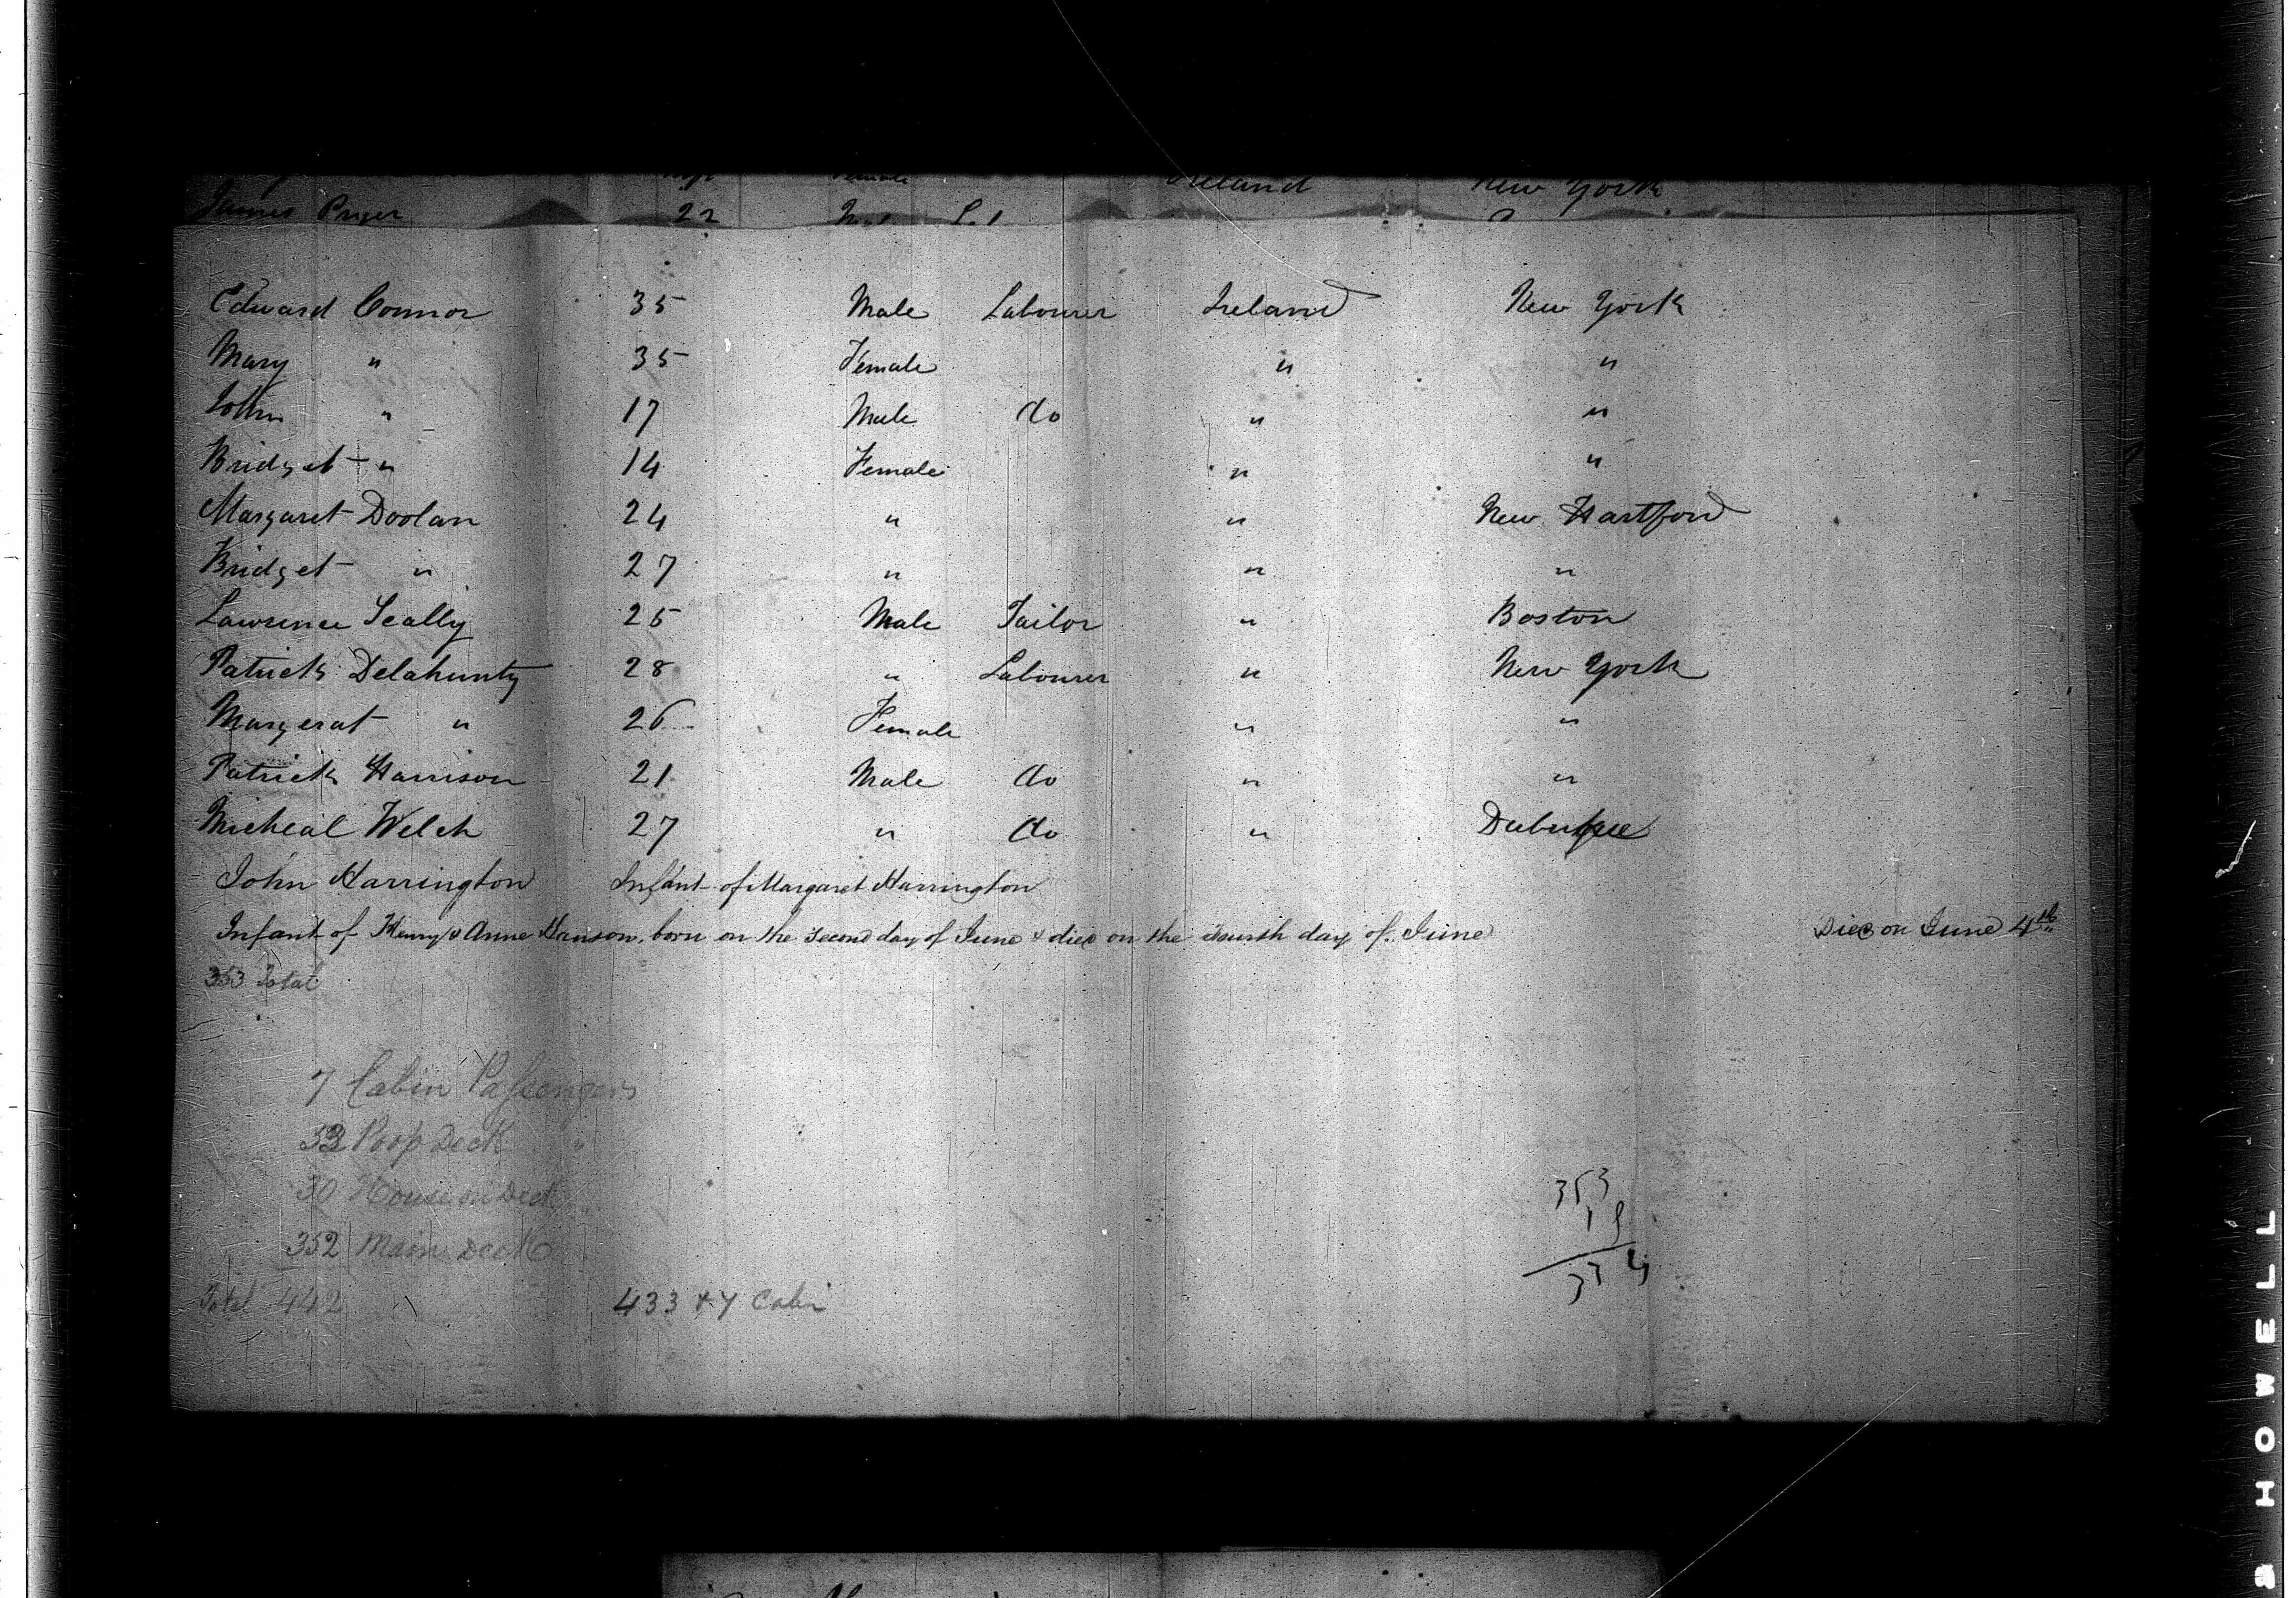 Female Ireland New York
James Pryer 22
Edward Connor 35 Male Labourer Ireland New York
Mary " 35 Female " "
John " 17 Male do " "
Bridget " 14 Female " "
Margaret Doolan 24 " " New Hartford
Bridget " 27 " " "
Lawrence Scally 25 Male Tailor " Boston
Patrick Delahunty 28 " Labourer " New York
Margerat " 26 Female " "
Patrick Harrison 21 Male do " "
Micheal Welch 27 " do " Dubuque
John Harrington Infant of Margaret Harrington
Infant of Henry & Anne Hanson, born on the second day of June & died on the fourth day of June Died on June 4th
353 Total
7 Cabin Passengers
53 Poop Deck "
30 House on Deck "
352 Main Deck
Total 442 433 & 7 Cabi
353
HOWELL